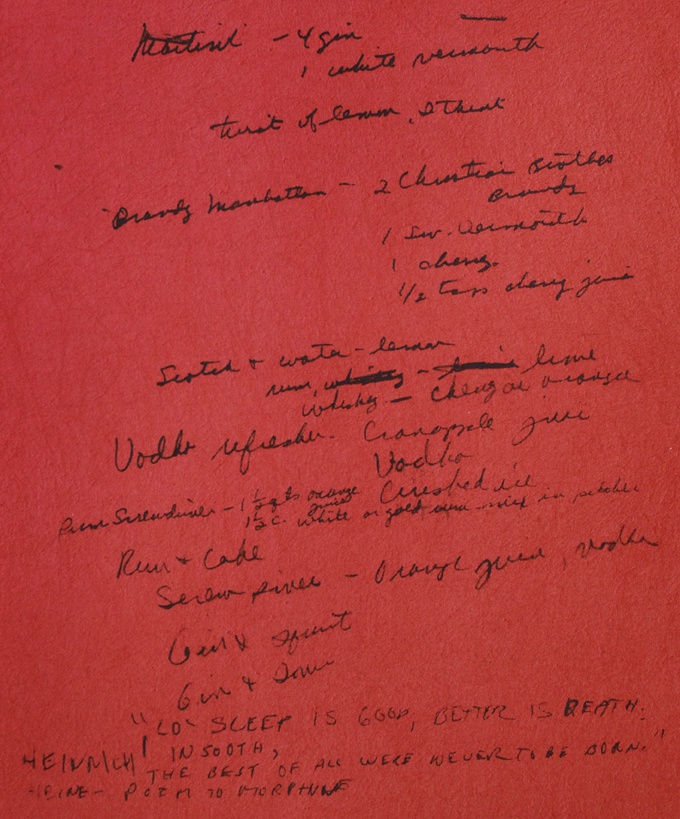 Martini - 4 gin
1 white vermouth
twist of lemon, I think
Brandy Manhattan - 2 Christian Brothes
Brandy
1 Sw. Vermouth
1 cherry
1/2 tbsp cherry juice
Scotch & water - lemon
rum, whiskey - lime
whiskey - cherry or orange
Vodka refresher. Cranapple juice
Vodka
Crushed ice
Rum Screwdriver - 1 1/2 qts orange juice
1 1/2 c. white or gold rum - mix in pitcher
Rum & Coke
Screw driver - Orange juice, vodka
Gin & Squirt
Gin &
"LO SLEEP IS GOOD, BETTER IS DEATH:
IN SOOTH,
THE BEST OF ALL WERE NEVER TO BE BORN."
HEINRICH
HEINE - POEM TO MORPHINE